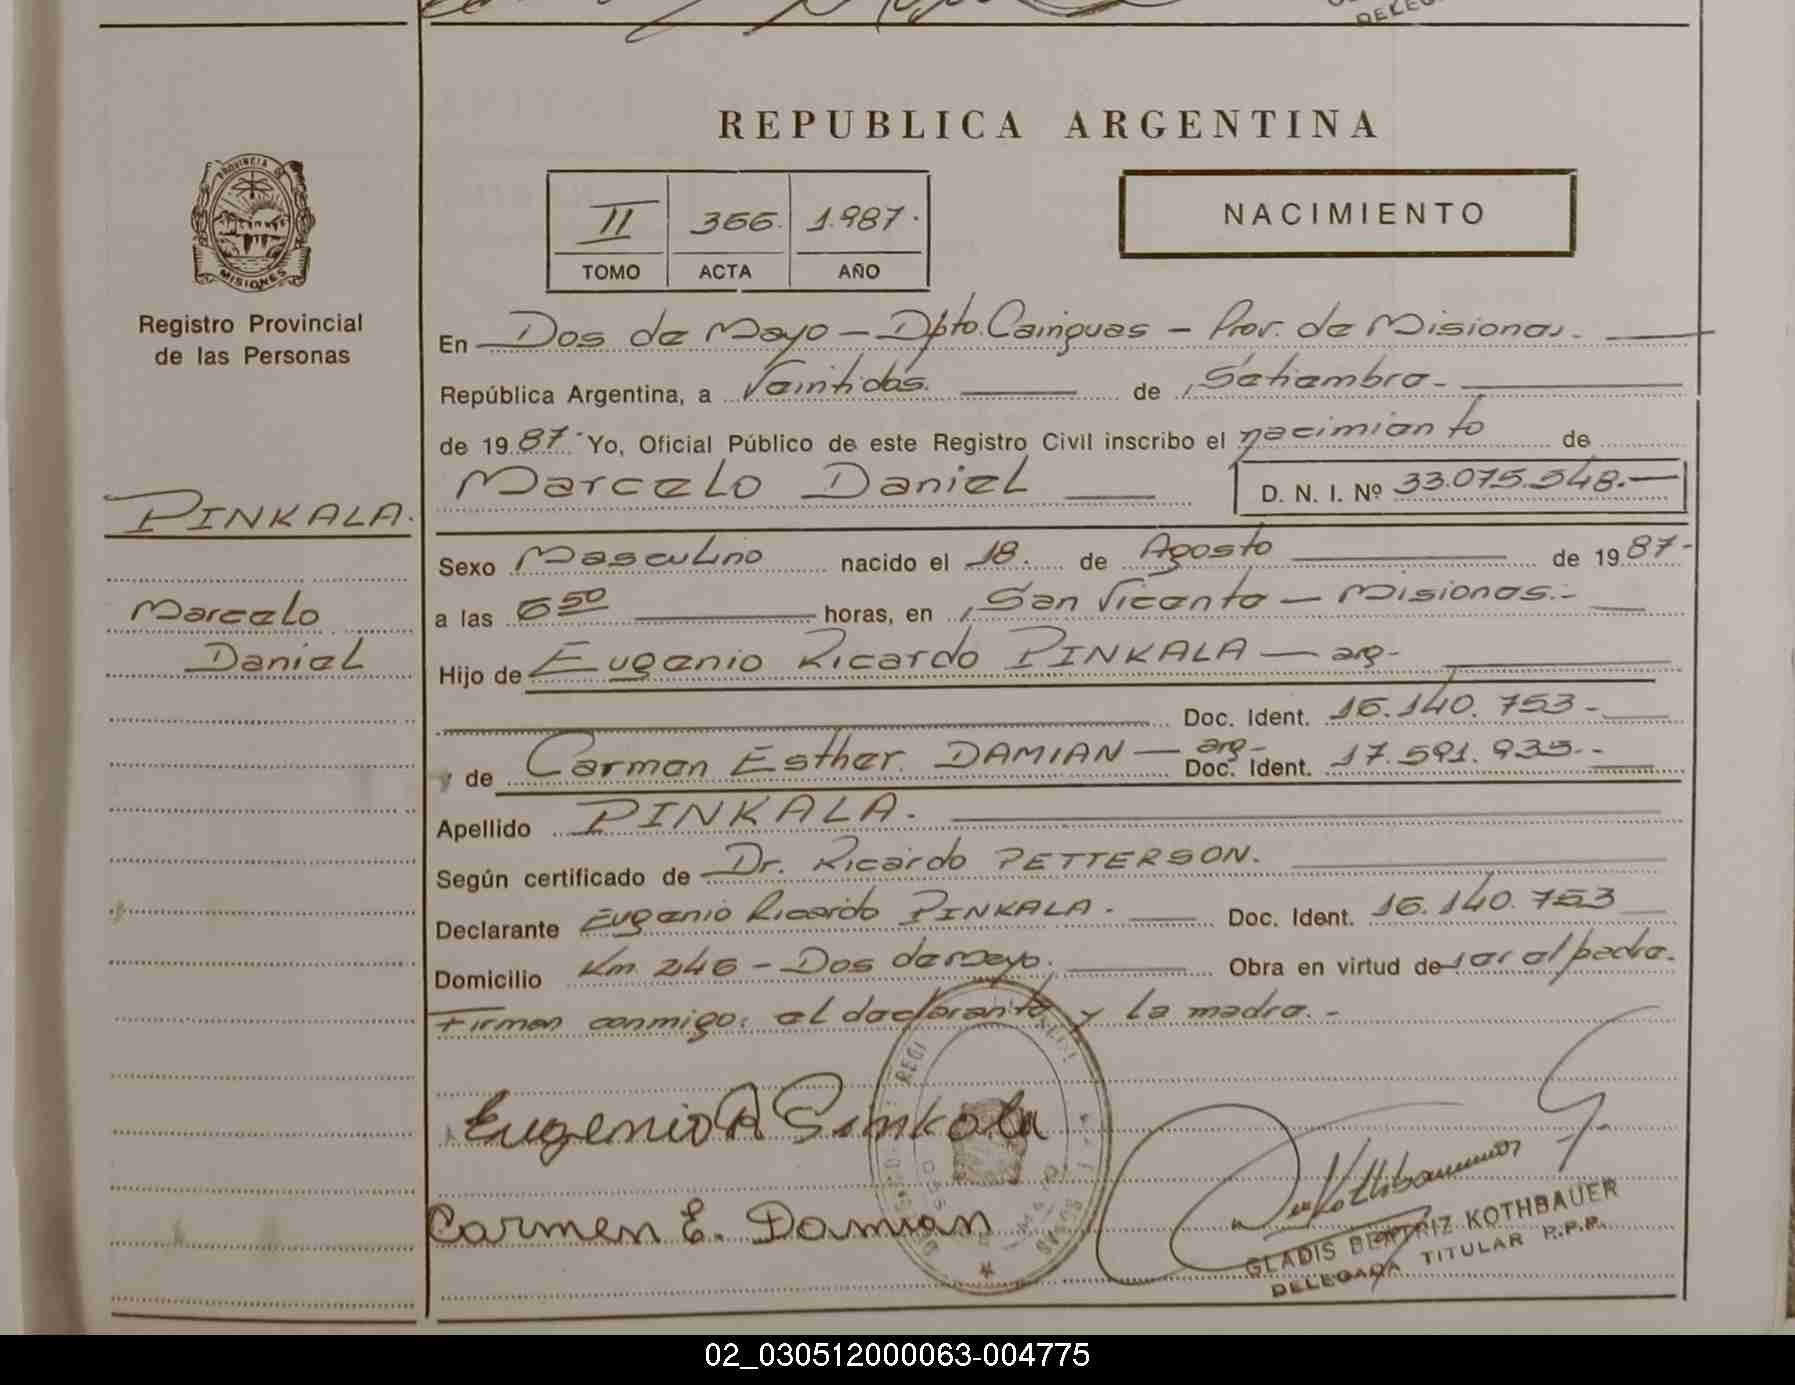 REPUBLICA ARGENTINA
PROVINCIA DE
MISIONES
Registro Provincial
de las Personas
II 366. 1.987.
TOMO ACTA AÑO
NACIMIENTO
En Dos de Mayo - Dpto. Cainguas - Prov. de Misiones.
República Argentina, a Veintidós. de Setiembre-
de 1987.- Yo, Oficial Público de este Registro Civil inscribo el nacimiento de
Marcelo Daniel D. N. I. Nº 33.075.548.-
PINKALA.
Marcelo
Daniel
Sexo Masculino nacido el 18. de Agosto de 1987-
a las 6 50 horas, en San Vicente - Misiones.-
Hijo de Eugenio Ricardo PINKALA - arg-
Doc. Ident. 16.140.753-
y de Carmen Esther DAMIAN - arg- Doc. Ident. 17.591.935.-
Apellido PINKALA.
Según certificado de Dr. Ricardo PETTERSON.
Declarante Eugenio Ricardo PINKALA. Doc. Ident. 16.140.753
Domicilio Km 246 - Dos de Mayo. Obra en virtud de ser el padre.
Firman conmigo: el declarante y la madre.-
Eugenio R Pinkala
Carmen E. Damian
Kothbauer
GLADIS BEATRIZ KOTHBAUER
DELEGADA TITULAR R.P.P.
02_030512000063-004775